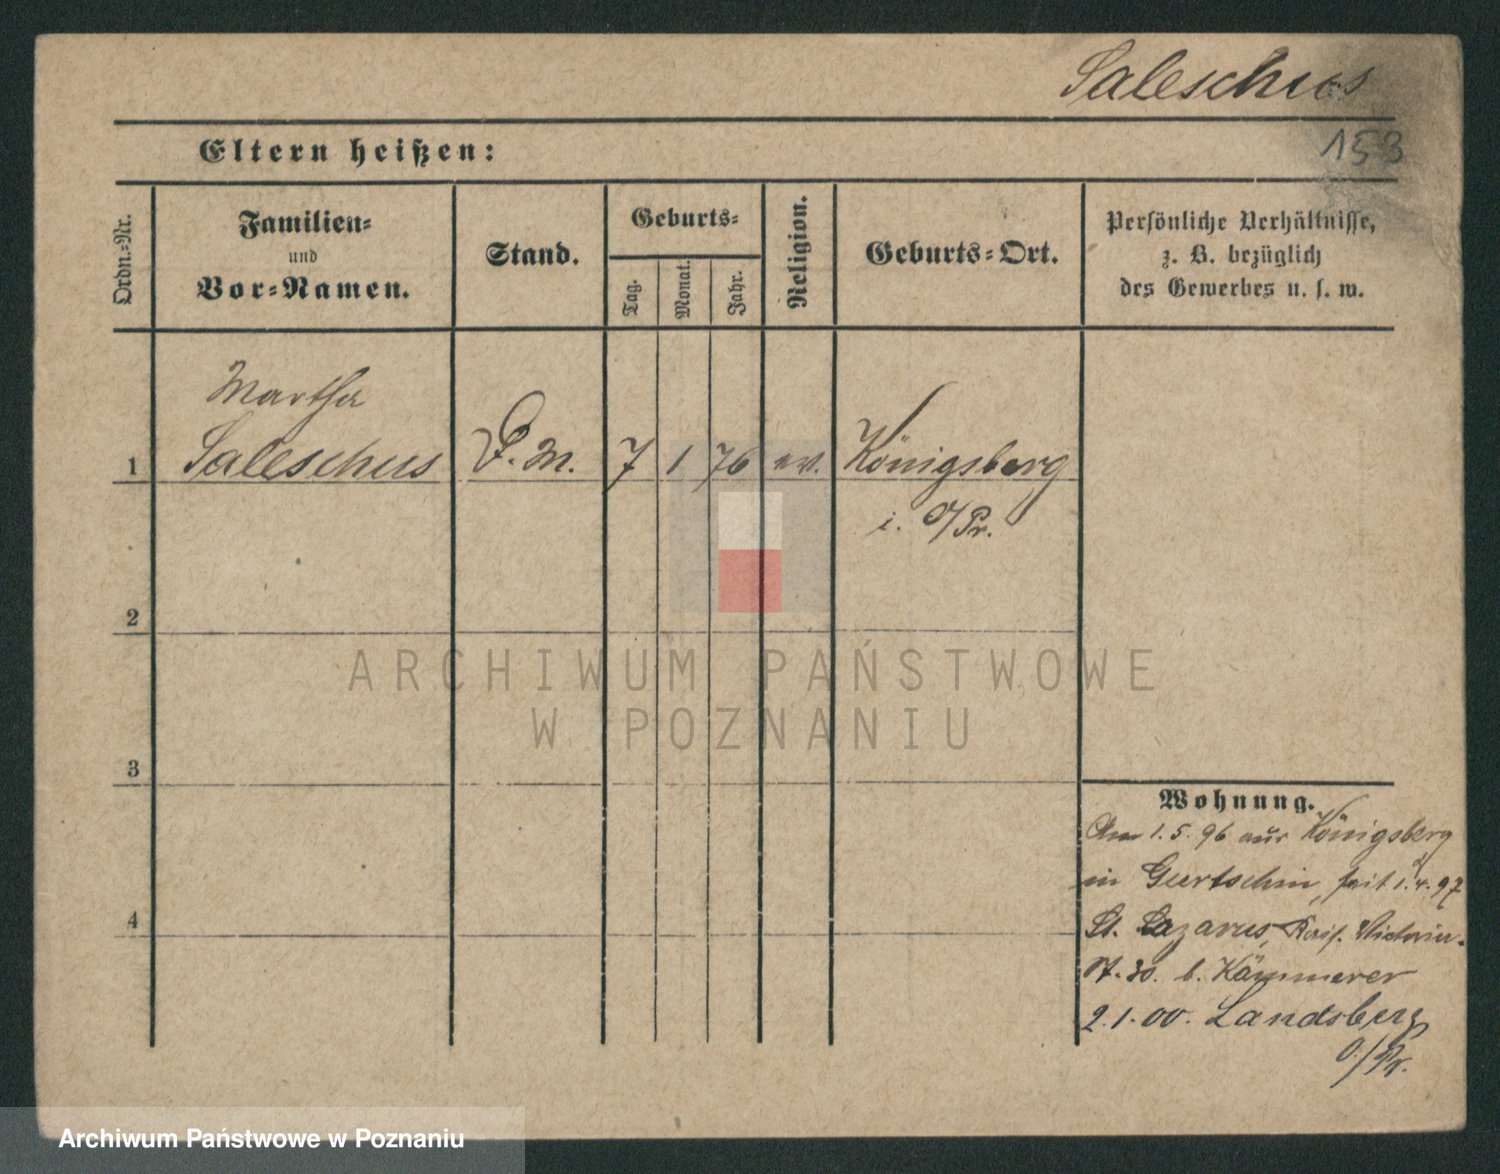 Saleschus
153
Eltern heißen:
Ordn.-Nr.
Familien-
und
Vor-Namen.
Stand.
Geburts-
Tag.
Monat.
Jahr.
Religion.
Geburts-Ort.
Persönliche Verhältnisse,
z. B. bezüglich
des Gewerbes u. s. w.
Martha
1 Saleschus D. M. 7 1 76 ev. Königsberg
i. O/Pr.
2
3
4
Wohnung.
Am 1.5.96 aus Königsberg
in Guertschin, seit 1.4.97
St. Lazarus, Victoria-
St. 30. b. Kämmerer
2.1.00. Landsberg
O./Pr.
ARCHIWUM PAŃSTWOWE
W POZNANIU
Archiwum Państwowe w Poznaniu